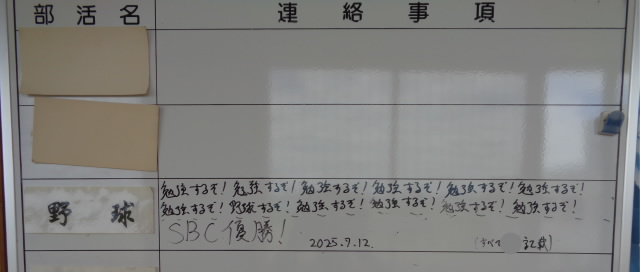 部活名 連絡事項
勉強するぞ! 勉強するぞ! 勉強するぞ! 勉強するぞ! 勉強するぞ! 勉強するぞ!
野球 勉強するぞ! 野球するぞ! 勉強するぞ! 勉強するぞ! 勉強するぞ! 勉強するぞ!
SBC優勝!
2025.7.12. (すべて 記載)